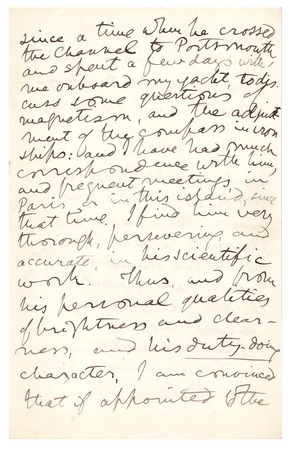 since a time when he crossed
the Channel to Portsmouth
and spent a few days with
me onboard my yacht, to dis-
cuss some questions of
magnetism, and the adjust
ment of the compass in iron
ships: and I have had much
correspondence with him,
and frequent meetings, in
Paris, or in this island, since
that time. I find him very
thorough, persevering, and
accurate, in his scientific
work. Thus, and from
his personal qualities
of brightness and clear-
ness, and his duty-doing
character, I am convinced
that if appointed to the